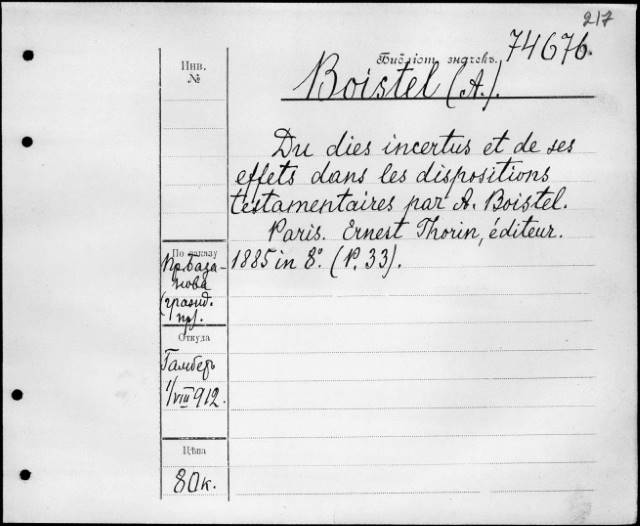 217
Библіот. значекъ. 74676.
Инв.
№
Boistel (A.).
Du dies incertus et de ses
effets dans les dispositions
testamentaires par A. Boistel.
Paris. Ernest Thorin, éditeur.
1885 in 8°. (P. 33).
По заказу
Пр. База-
нова
(гражд.
пр).
Откуда
Гамберъ
1/VIII 912.
Цѣна
80 к.